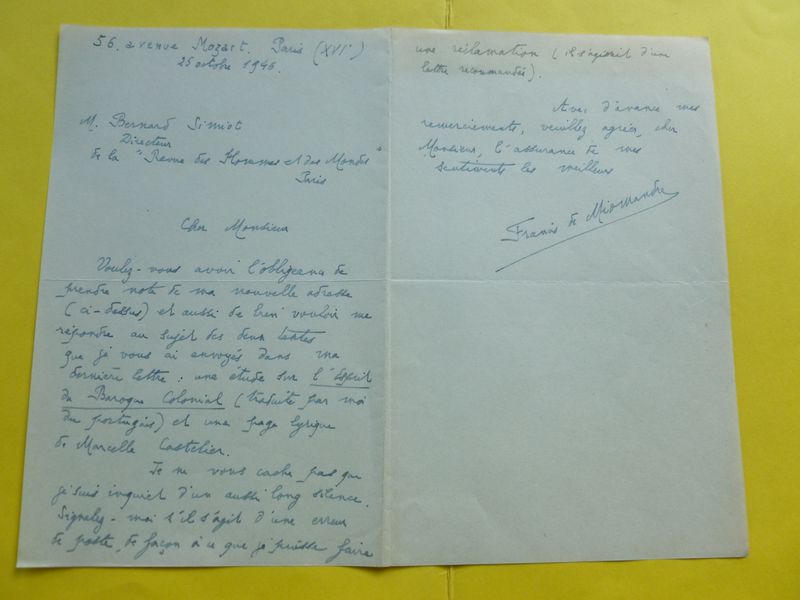 56. avenue Mozart. Paris (XVIe)
25 octobre 1946.
M. Bernard Simiot
Directeur
de la "Revue des Hommes et des Mondes"
Paris
Cher Monsieur
Voulez-vous avoir l'obligeance de
prendre note de ma nouvelle adresse
(ci-dessus) et aussi de bien vouloir me
répondre au sujet des deux textes
que je vous ai envoyés dans ma
dernière lettre : une étude sur l'Esprit
du Baroque Colonial (traduite par moi
du portugais) et une page lyrique
de Marcelle Castelier.
Je ne vous cache pas que
je suis inquiet d'un aussi long silence.
Signalez-moi s'il s'agit d'une erreur
de poste, de façon à ce que je puisse faire
une réclamation (il s'agissait d'une
lettre recommandée).
Avec d'avance mes
remerciements, veuillez agréer, cher
Monsieur, l'assurance de mes
sentiments les meilleurs
Francis de Miomandre